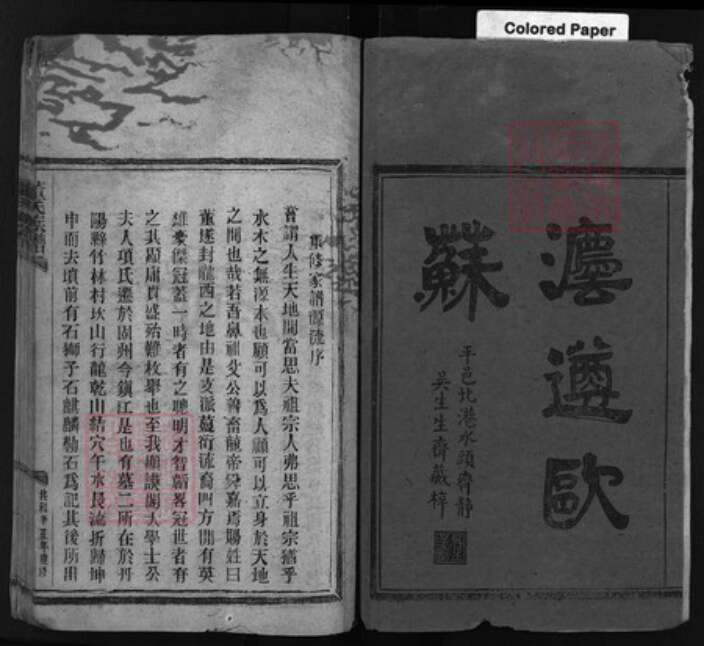 Colored Paper
灋遵歐
蘇
平邑北港水頭齊靜
吳生生齋藏梓
重修家譜源流序
嘗謂人生天地間當思夫祖宗人弗思乎祖宗猶乎
水木之無源本也顧可以為人顧可以立身於天地
之間也哉若吾鼻祖父公善畜龍帝舜嘉焉賜姓曰
董遂封隴西之地由是支派蔓衍流裔四方間有英
雄豪傑冠蓋一時者有之聰明才智韜畧冠世者有
之其顯庸貴盛殆難枚舉也至我 諱 大學士公
夫人項氏遷於閏州今鎮江是也有墓二所在於丹
陽縣竹林村坎山行龍乾山結穴午水長流折歸坤
申而去墳前有石獅子石麒麟勒石為記其後所出
共和 年重修